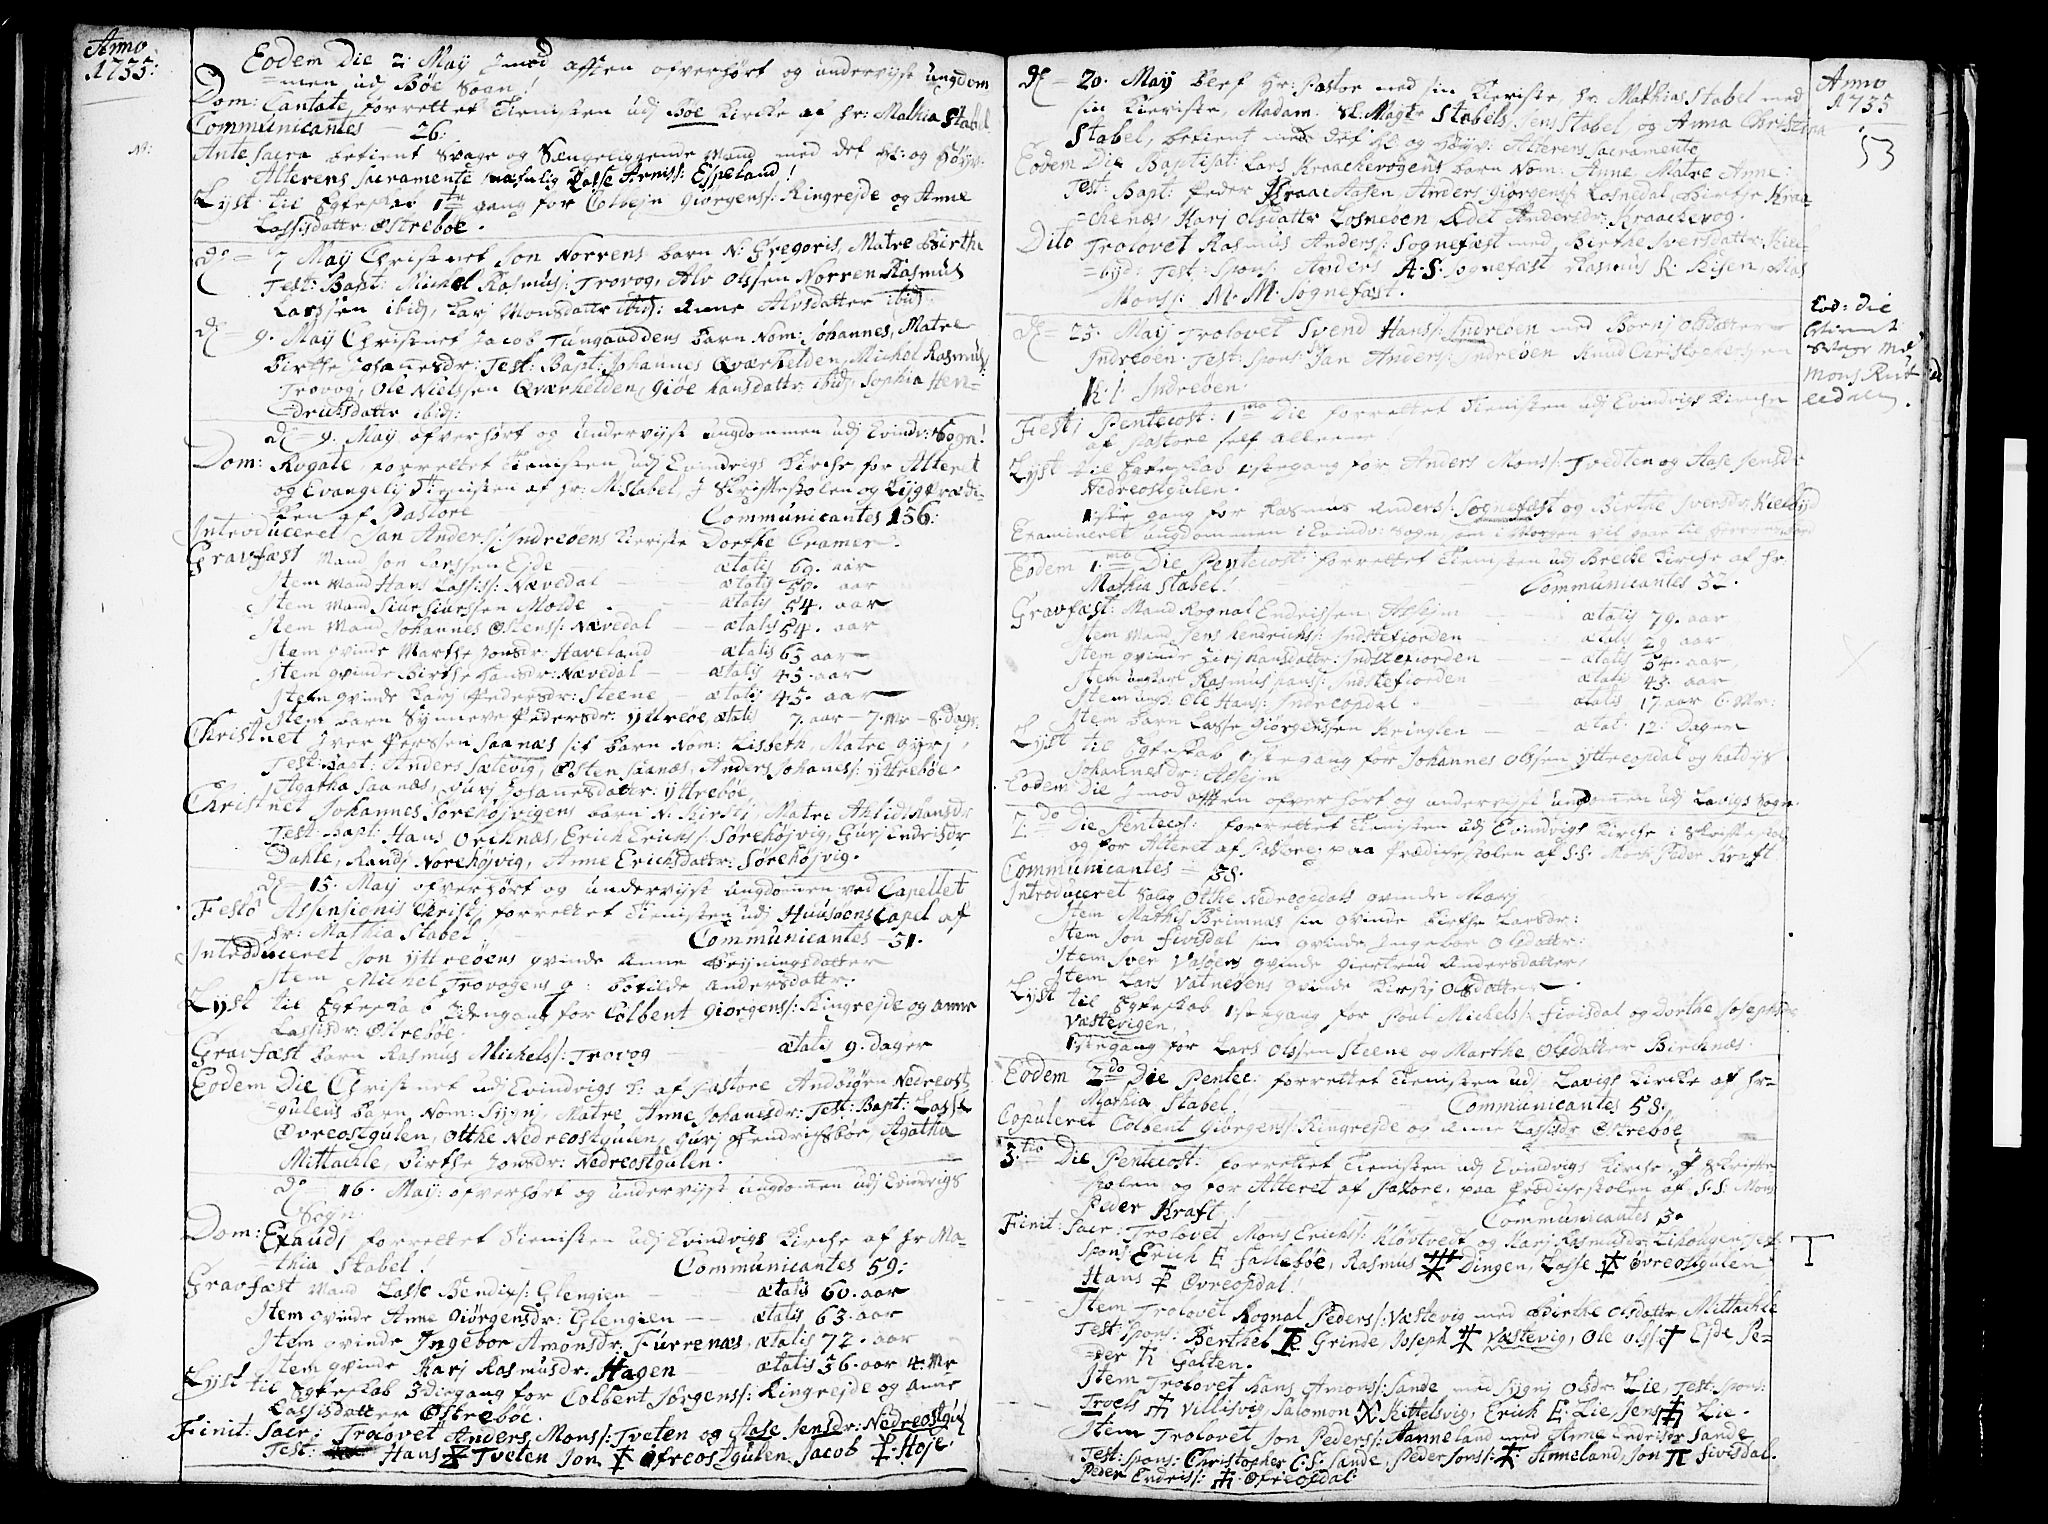 Anno
1755:
Eodem Die 2 Maij J mod afften ofverhørt og undervijst ungdom
=men udj Bøe Sogn!
Dom: Cantate, forrettet Tienisten udj Bøe Kircke af Hr: Mathia Stabel
Communicantes - 26:
Ante Sacra betient Svage og Sængeliggende Mand med det H: og høyv:
Alterens Sacramente nafnlig Lasse Arnis: Espeland!
Lyst til Egteskab 1te gang for Colbejn Giørgens: Ringrejde og Anne
Lassisdatter Østrebøe.
do = 7 Maij Christnet Jon Norrens barn N: Gregoris, Matre Birthe
Test: Bapt: Michel Rasmus: Trovog, Alv Olssen Norren Rasmus
Larssen ibid, Karj Monsdatter ibid: Anne Alvsdatter ibid:
d 9. Maij Christnet Jacob Tungaaddens barn Nom: Johannes, Matre
Birthe Johannesdr: Test: Bapt: Johannes Qværhelden, Michel Rasmus:
Trovog, Ole Nielssen Qværhelden, Giøe Hansdattr: ibid: Sophia Hen=
=dricksdattr ibid:
d = 9. Maij ofverhørt og undervijst ungdommen udj Evindv: Sogn!
Dom: Rogate, forrettet Tienisten udj Evindvigs Kirche for Alteret
og Evangelij Tienisten af Hr: M: Stabel, J Skriftestolen og Lijgprædi=
ken af Pastore Communicantes 156:
Introduceret Jan Anders: Jndreøens Kieriste Dorthe Cramer.
Gravfæst Mand Jon Larssen Ejde ætatis 69. aar
Item Mand Hans Lassis: Nævedal - ætatis 50. aar
Item Mand Siur Siurssen Molde - ætatis 54. aar
Item Mand Johannes Østens: Nævedal - ætatis 54. aar
Item qvinde Marthe Jonsdr: Haveland ætatis 65 aar
Item qvinde Birthe Hansdr: Nævedal - ætatis 45. aar
Item qvinde Karj Pedersdr: Steene - ætatis 45. aar
Item barn Synneve Pedersdr: Yttreøe ætatis 7. aar - 7. Mr - 8. dage:
Christnet Iver Perssen Saanæs sit barn Nom: Lisbeth, Matre Gyrj,
Test: Bapt: Anders Sætevig, Østen Saanæs, Anders Johanes: Yttrebøe
Agatha Saanæs, Gurj Johanesdattr: Yttrebøe
Christnet Johannes Sørehøjvigens barn N: Kirstj, Matre Ahlidj Hansdr
Test: Bapt: Hans Orchnæs, Erich Erichs: Sørehøjvig, Gurj Endr: dr
Dahle, Randj Norehøjvig, Anne Erichsdatter: Sørehøjvig.
d = 15. Maij ofverhørt og undervijst ungdomen ved Capellet
Festo Assensionis Christj forrettet Tienisten udj Huusøens Capel af
Hr: Mathia Stabel Communicantes - 51.
Introduceret Jon Yttreøens qvinde Anne Brijningsdatter
Item Michel Trovogens q: Botilde Andersdatter:
Lyst til Egteskab 2den gang for Colbent Giørgens: Ringrejde og Anne
Lassisdr: Østrebøe.
Gravfæst barn Rasmus Michels: Trovog - ætatis 9. dager
Eodem Die Christnet udj Evindvigs K: af Pastore Andbiørn Nedreost
gulens barn, Nom: Sygnj, Matre, Anne Johanesdr: Test: Bapt: Lasse
Øvreostgulen, Otthe Nedreostgulen, Gurj Hendrichsbøe, Agatha
Mittachle, Birthe Jonsdr: Nedreostgulen.
do 16. Maij: ofverhørt og undervijst ungdomen udj Evindvigs
Sogn:
Dom: Exaudj forrettet Tienisten udj Evindvigs Kirche af Hr Ma=
=thia Stabel. Communicantes 59:
Gravfæst Mand Lasse Bendix: Glengien - ætatis 60. aar
Item qvinde Anne Giørgensdr: Glengien - ætatis 63. aar
Item qvinde Jngebor Amonsdr: Furrenæs, ætatis 72. aar
Item qvinde Karj Rasmusdr: Hagen - ætatis 36. aar 4. Mr
Lyst til Egteskab 3die gang for Colbent Jørgens: Ringrejde og Anne
Lassisdatter Østrebøe.
Finit: Sacr: Trolovet Anders Mons: Tveten og Aase Jensdr: Nedreostgul
Test: Hans Tveten Jon Øfreostgulen. Jacob Høje.
Anno
1755
53
d - 20. Maij Beret Hr: Pastor med sin Kieriste, Hr Mathias Stabel med
sin Kieriste, Madam: Sl: Magte Stabels, Jens Stabel og Anna Christina
Stabel, betient med det H: og høyv: Alterens Sacramente
Eodem Die Baptisat: Lars Kraackevogens barn Nom: Anne, Matre Anne:
Test: Bapt: Peder Kraackaasen, Anders Giørgens: Losnedal, Birthe Kraa=
=chenæs, Karj Olsdattr Losneøen Ædel Andersdr: Kraackevog.
Dito Trolovet Rasmus Anders: Sognefæst med, Birthe Iversdatter: Kiel=
=byd: Test: Spons: Anders A.S. Sognefæst Rasmus R: Risen, Mas
Mons: M. M. Sognefæst.
d = 25. Maij Trolovet Svend Hans: Jndreøen med Børnj Olsdatter
Jndreøen. Test: Spons: Jan Anders: Jndreøen Knud Christophersen
K: C: Jndreøen.
Eod: Die
betient
Svage Md
Mons Rut
ledalen.
Festj Pentecost: 1ma Die forrettet Tienisten udj Evindvigs Kirche
af Pastore self alleene
Lyst til Egteskab 1ste gang for Anders Mons: Tvedten og Aase Jensdr
Nedreostgulen.
1ste gang for Rasmus Anders: Sognefæst og Birthe Iversdr Kielbyd
Examineret ungdommen i Evindv: Sogn, som i Morgen vil gaae til Herrens bord
Eodem 1.ma Die Pentecost: forrettet Tienisten udj Brecke Kirche af Hr.
Mathia Stabel! Communicantes 32.
Gravfæst: Mand Rognal Endrissen Assejm ætatis 79. aar
Item Mand Jens Hendrichs: Jndstefiorden - ætatis 29 aar
Item qvinde Zirj Hansdattr: Jndstefiorden - ætatis 54. aar
Item ungkarl Rasmus Hans: Jndstefiorden - ætatis 45. aar
Item ungk: Ole Hans: Jndreopdal. - ætatis 17. aar 6. Mr:
Item barn Lasse Giørgenssen Kringlen - ætat: 12: Dager
Lyst til Egteskab 1ste gang for Johannes Olssen Yttreopdal og Kaldijs
Johannesdr: Assejm
Eodem Die J mod afften ofverhørt og undervijst ungdomen udj Lavigs Sogn.
2.do Die Pentecos: forrettet Tienisten udj Evindvigs Kirche i Skriftestol
og for Alteret af Pastore; paa Prædichestolen af S.S: Mons: Peder Kraft
Communicantes - 38.
Introduceret Salig Otthe Nedreopdals qvinde Marj
Item Mathis Brimnæs sin qvinde Birthe Larsdr:
Item Jon Fivisdal sin qvinde Jngebor Olsdatter:
Item Iver Valsøens qvinde Giertrud Andersdatter,
Item Lars Vatneøens qvinde Kirstj Olsdatter.
Lyst til Egteskab 1ste gang for Poul Michels: Fivisdal og Dorthe Josephsdr
Væstevigen.
1ste gang for Lars Olssen Steene og Marthe Olsdatter Birchnæs.
Eodem 2do Die Pentec: forrettet Tienisten udj Lavigs Kircke af Hr=
Mathia Stabel! Communicantes 58.
Copuleret Colbent Giørgens: Ringrejde og Anne Lassisdr Østrebøe
3.tio Die Pentecost: forrettet Tienisten udj Evindvigs Kirche, J Skrifte=
stolen og for Alteret af Pastore. paa Prædichestolen af S.S: Mons
Peder Kraft! Communicantes 3.
Finit: Sacr: Trolovet Mons Erichs: Kløvtvedt og Karj Rasmusdr: Liphougen, Test:
Spons: Erich E Fallebøe, Rasmus Dingen, Lasse Øvreostgulen
Hans Øvreopdal!
Item Trolovet Rognal Peders: Væstevig med Birthe Olsdattr Mittachle
Test: Spons: Berthel Grinde, Joseph Væstevig, Ole Ols: Ejde Pe=
=der Galten.
Item Trolovet Hans Amons: Sande med Sygnj Olsdr. Lie, Test: Spons:
Troels Villisvig Salomon Kittelsvig, Erich E: Lie, Jens Lie.
Item Trolovet Jon Peders: Aanneland med Anne Endrisdr Sande
Test: Spons: Christopher C.S: Sande, Peder Jons: Anneland, Jon Fivisdal.
Peder Endris: Øfreopdal: